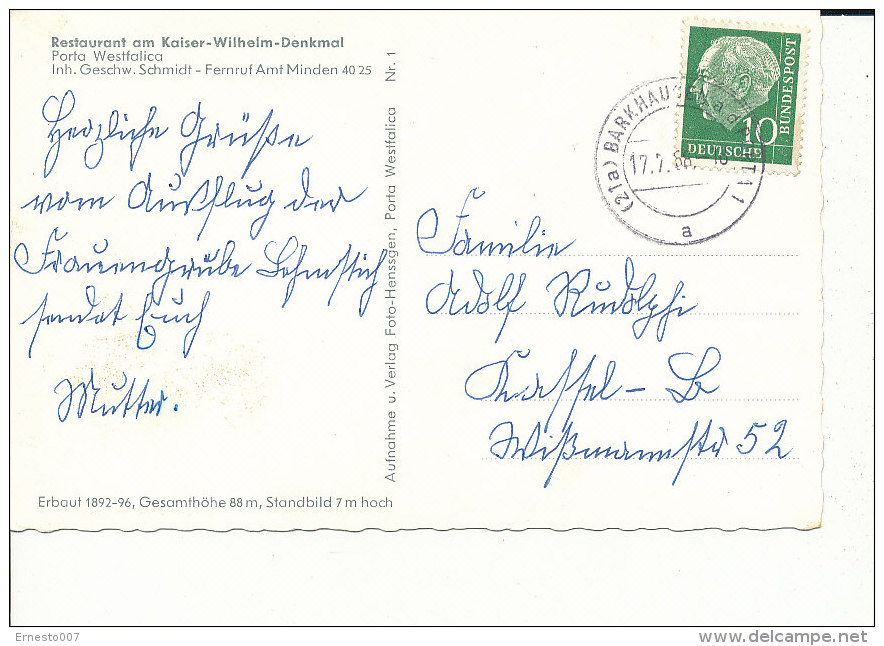 Restaurant am Kaiser-Wilhelm-Denkmal
Porta Westfalica
Inh. Geschw. Schmidt - Fernruf Amt Minden 40 25
Nr. 1
Herzliche Grüße
vom Ausflug der
Frauengrube
sendet Euch
Mutter.
Erbaut 1892-96, Gesamthöhe 88 m, Standbild 7 m hoch
Aufnahme u. Verlag Foto-Henssgen, Porta Westfalica
DEUTSCHE
BUNDESPOST
10
(21a) BARKHAUSEN
17.7.
a
Familie
Adolf Rudolphi
Kassel - B
Wißmannstr 52
Ernesto007
www.delcampe.net